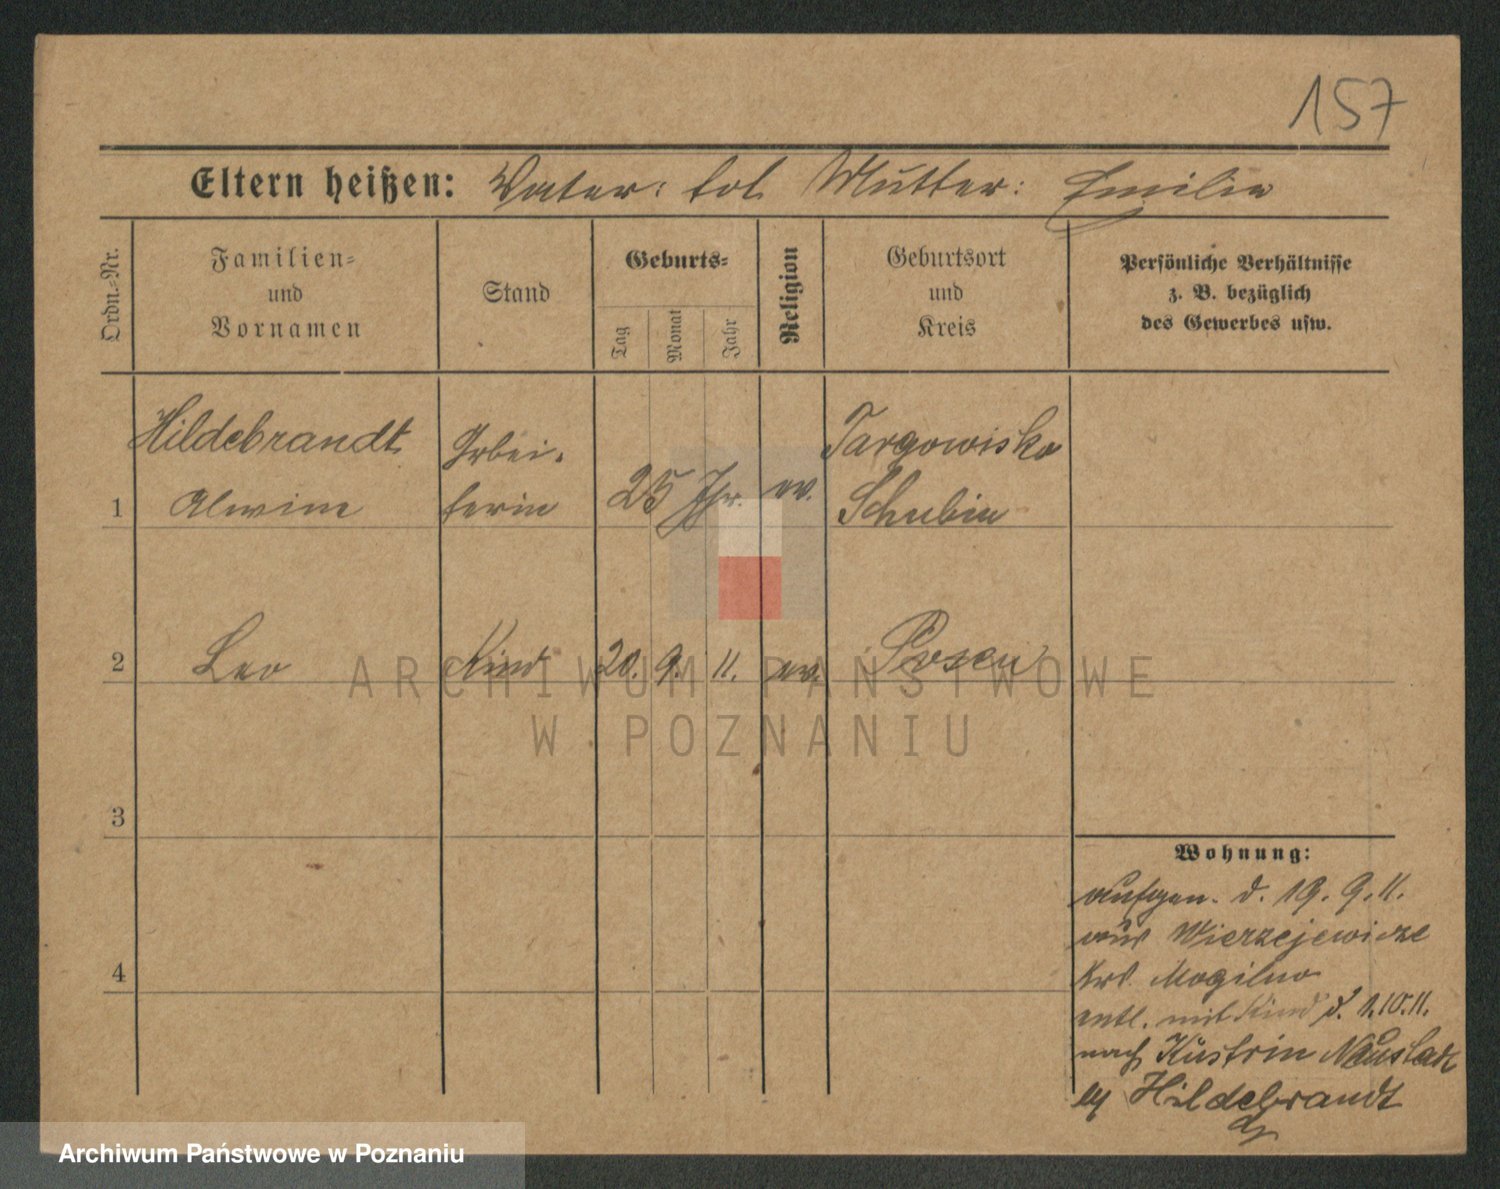 157
Eltern heißen: Vater: tot Mutter: Emilie
Ordn.-Nr.
Familien-
und
Vornamen
Stand
Geburts-
Tag
Monat
Jahr
Religion
Geburtsort
und
Kreis
Persönliche Verhältnisse
z. B. bezüglich
des Gewerbes usw.
Hildebrandt
Arbei- Targowisko
1 Alwine terin 25 Jhr. ev. Schubin
2 Leo Kind 20. 9. 11. ev. Posen
ARCHIWUM PAŃSTWOWE
W POZNANIU
3
4
Wohnung:
aufgen. d. 19. 9. 11.
aus Wierzejewice
Krs. Mogilno
entl. mit Kind d. 1.10.11.
nach Küstrin Neustadt
Hildebrandt
Archiwum Państwowe w Poznaniu